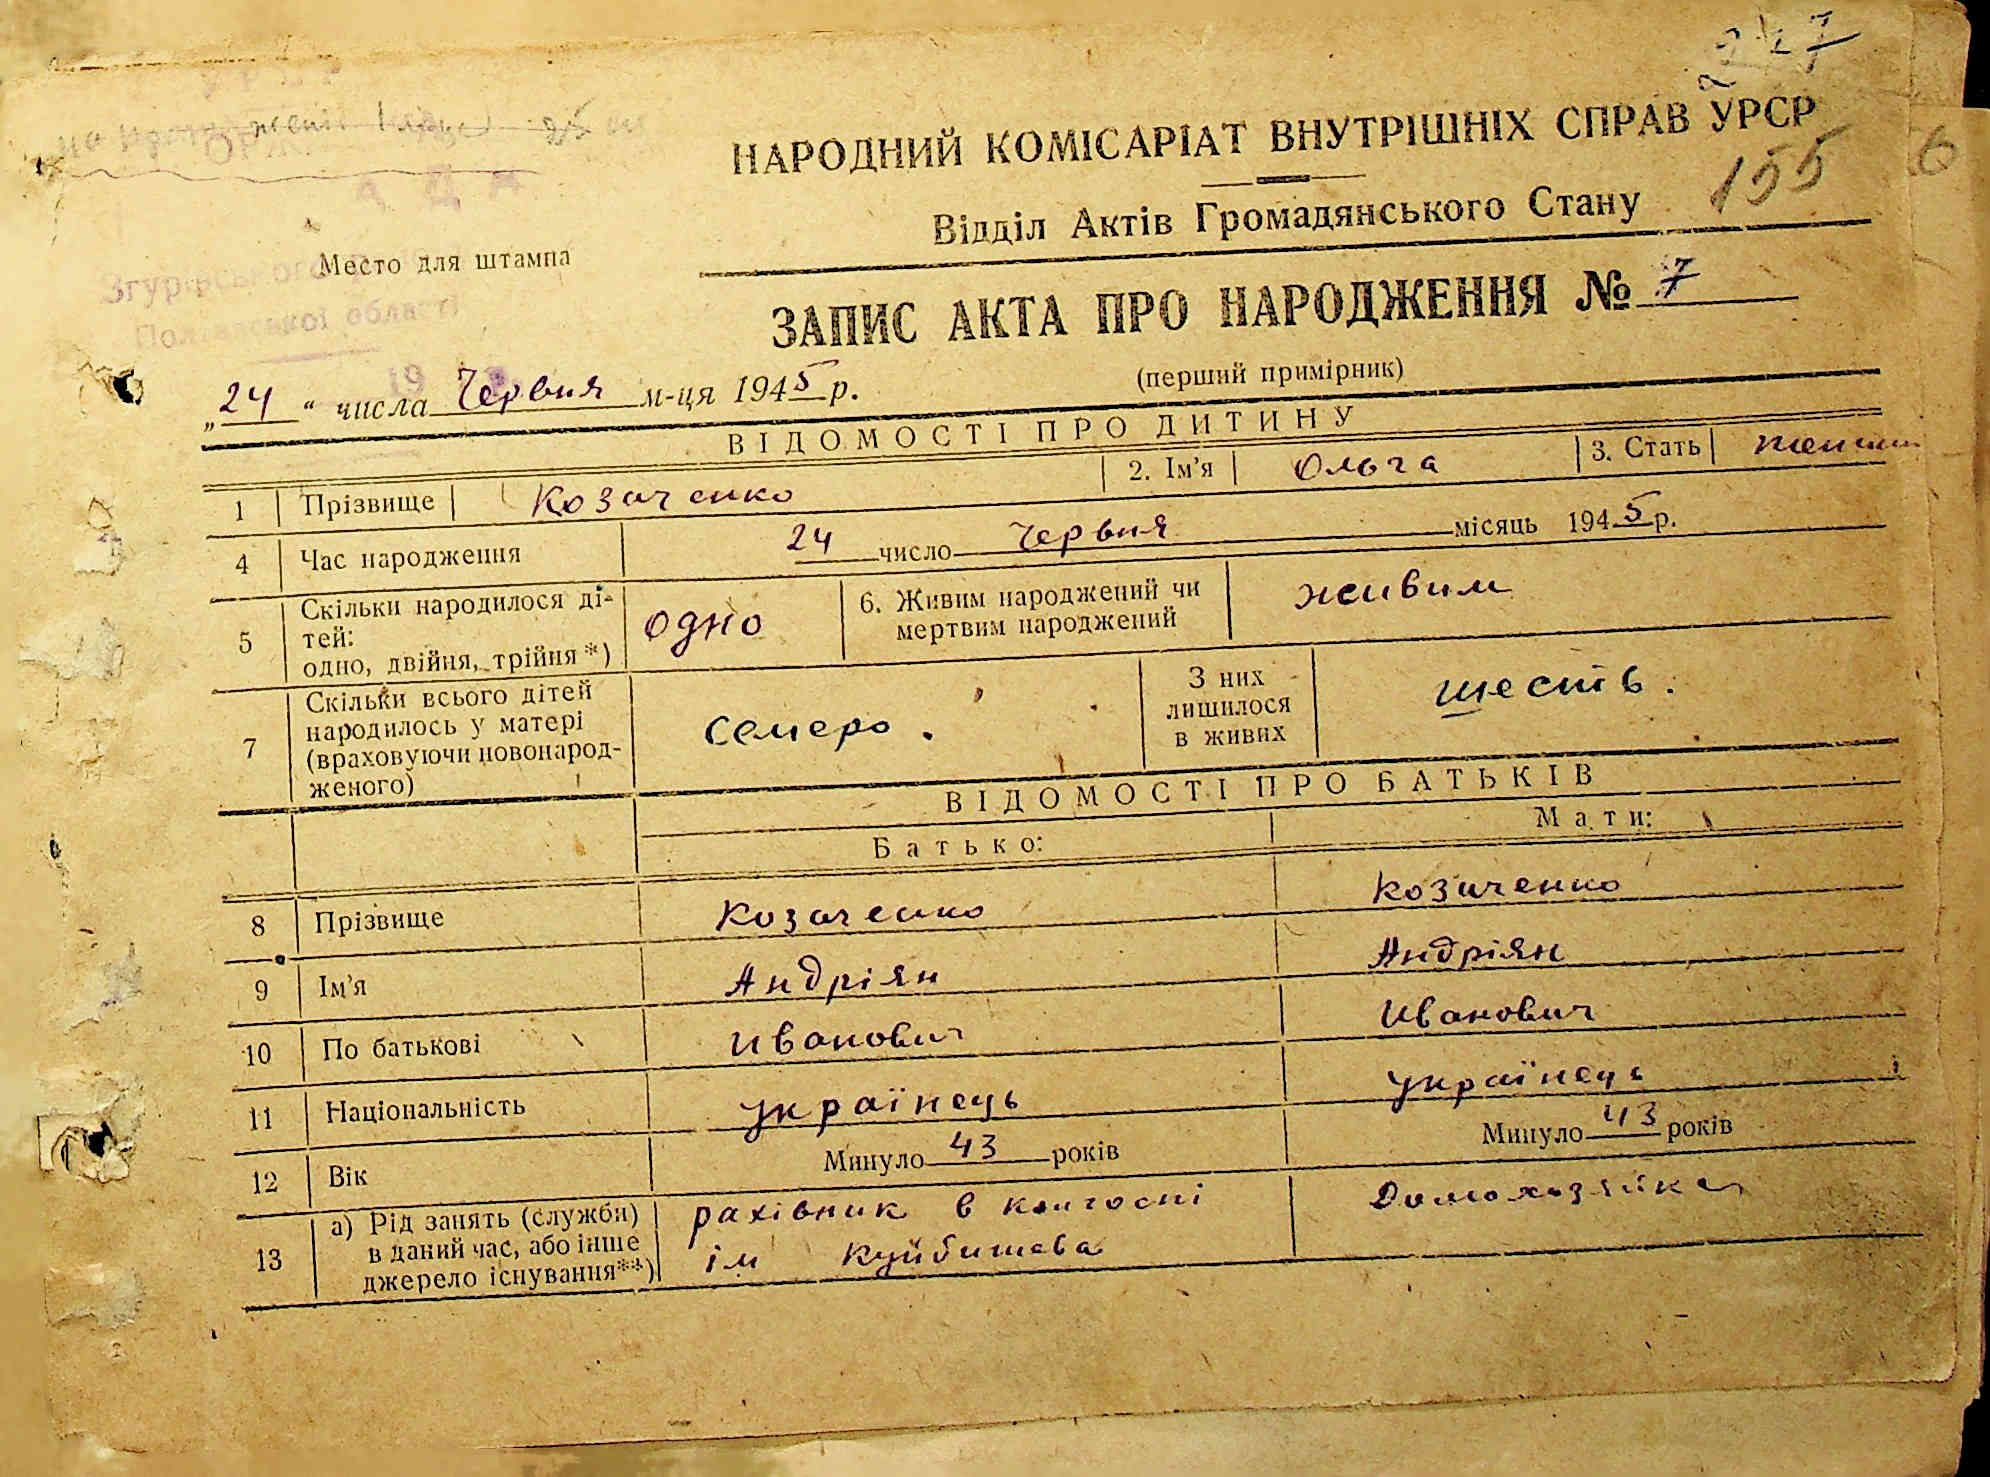 247
НАРОДНИЙ КОМІСАРІАТ ВНУТРІШНІХ СПРАВ УРСР
155
6
Відділ Актів Громадянського Стану
Место для штампа
Згурівського
Полтавської області
ЗАПИС АКТА ПРО НАРОДЖЕННЯ № 7
(перший примірник)
„24“ числа Червня м-ця 1945 р.
ВІДОМОСТІ ПРО ДИТИНУ
1 Прізвище Козаченко 2. Ім'я Ольга 3. Стать
4 Час народження 24 число Червня місяць 1945 р.
5 Скільки народилося ді-
тей:
одно, двійня, трійня*) одно 6. Живим народжений чи
мертвим народжений живим
7 Скільки всього дітей
народилось у матері
(враховуючи новонарод-
женого) семеро. З них
лишилося
в живих шість.
ВІДОМОСТІ ПРО БАТЬКІВ
Батько: Мати:
8 Прізвище Козаченко Козаченко
9 Ім'я Андріян Андріян
10 По батькові Иванович Иванович
11 Національність українець українець
12 Вік Минуло 43 років Минуло 43 років
13 а) Рід занять (служби)
в даний час, або інше
джерело існування**) рахівник в колгоспі
ім Куйбишева Домохозяйка